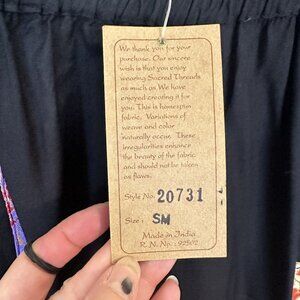 We thank you for your
purchase. Our sincere
wish is that you enjoy
wearing Sacred Threads
as much as We have
enjoyed creating it for
you. This is homespun
fabric. Variations of
weave and color
naturally occur. These
irregularities enhance
the beauty of the fabric
and should not be taken
as flaws.
Style No: 20731
Size: SM
Made in India
R. N. No.: 92502